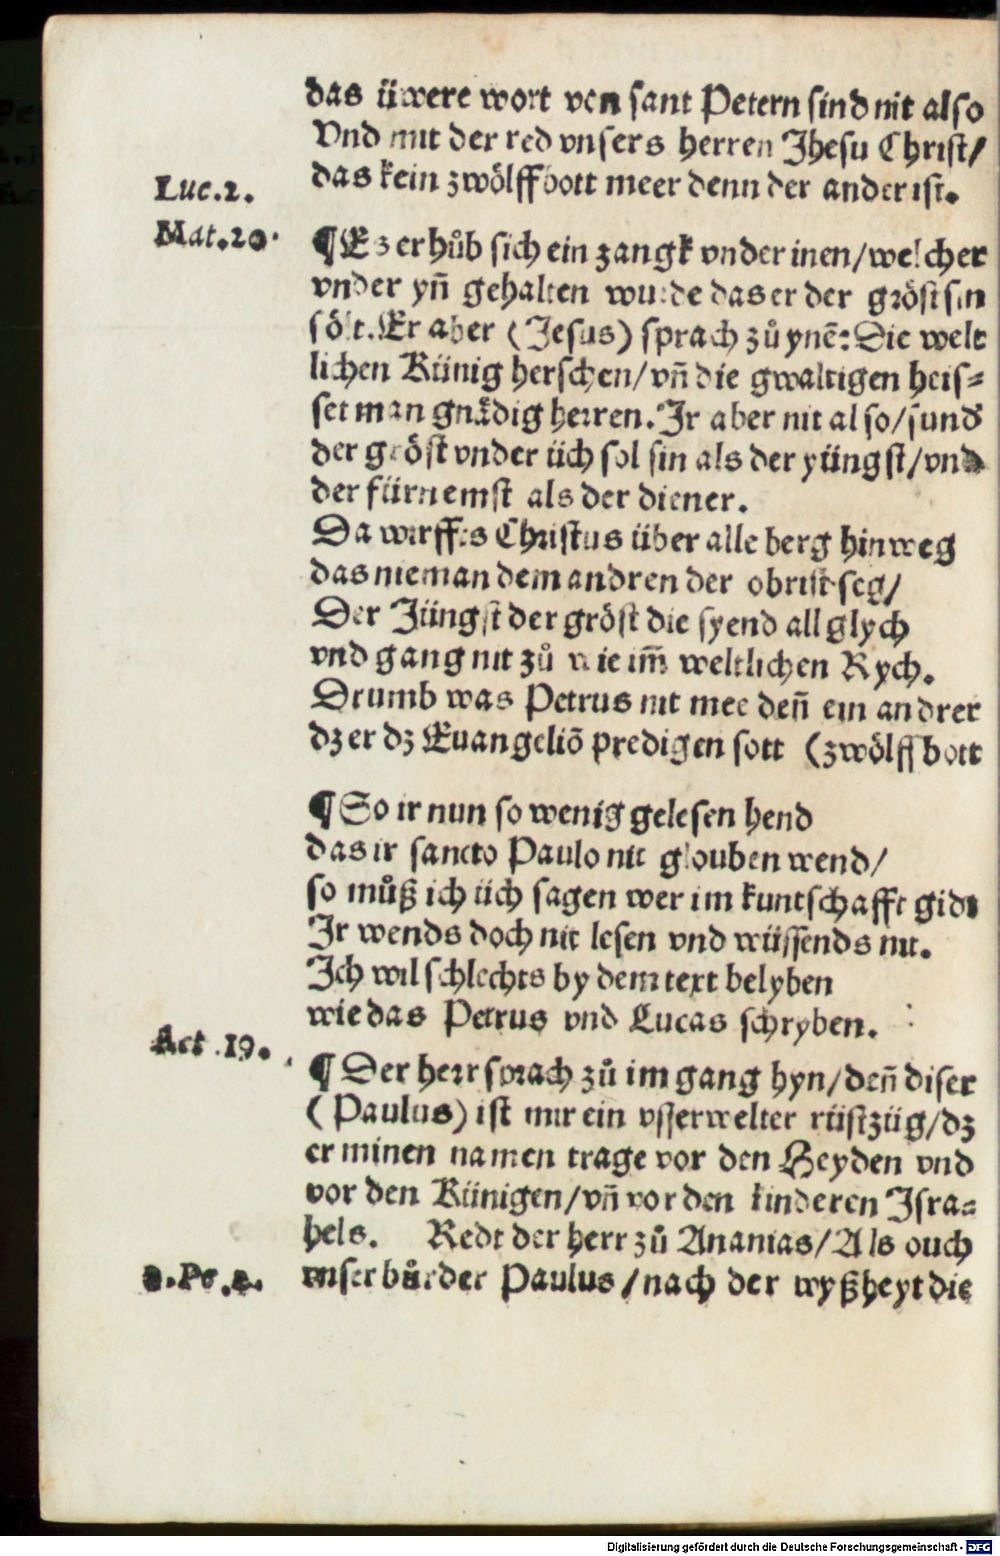 das üwere wort von sant Petern sind nit also
Vnd mit der red vnsers herren Jhesu Christ/
das kein zwölffbott meer denn der ander ist.
Luc.2.
Mat.20.
¶Ez erhůb sich ein zangk vnder inen/welcher
vnder yñ gehalten wurde das er der gröst sin
sölt. Er aber (Jesus) sprach zů ynẽ: Die welt
lichen Künig herschen/vñ die gwaltigen heis⸗
set man gnådig herren. Ir aber nit also/sund
der gröst vnder üch sol sin als der yüngst/vnd
der fürnemst als der diener.
Da wirffts Christus über alle berg hinweg
das nieman dem andren der obrist seg/
Der Jüngst der gröst die syend all glych
vnd gang nit zů wie im̃ weltlichen Rych.
Drumb was Petrus nit mee deñ ein andrer
dz er dz Euangeliõ predigen sott (zwölffbott
¶So ir nun so wenig gelesen hend
das ir sancto Paulo nit glouben wend/
so můß ich üch sagen wer im kuntschafft gidt
Ir wends doch nit lesen vnd wüssends nit.
Ich wil schlechts by dem text belyben
wie das Petrus vnd Lucas schryben.
Act .19.
¶Der herr sprach zů im gang hyn/deñ diser
(Paulus) ist mir ein vsserwelter rüstzüg/dz
er minen namen trage vor den Heyden vnd
vor den Künigen/vñ vor den kinderen Isra⸗
hels. Redt der herr zů Ananias/Als ouch
2.Pe.2. vnser bůrder Paulus/nach der wyßheyt die
Digitalisierung gefördert durch die Deutsche Forschungsgemeinschaft - DFG